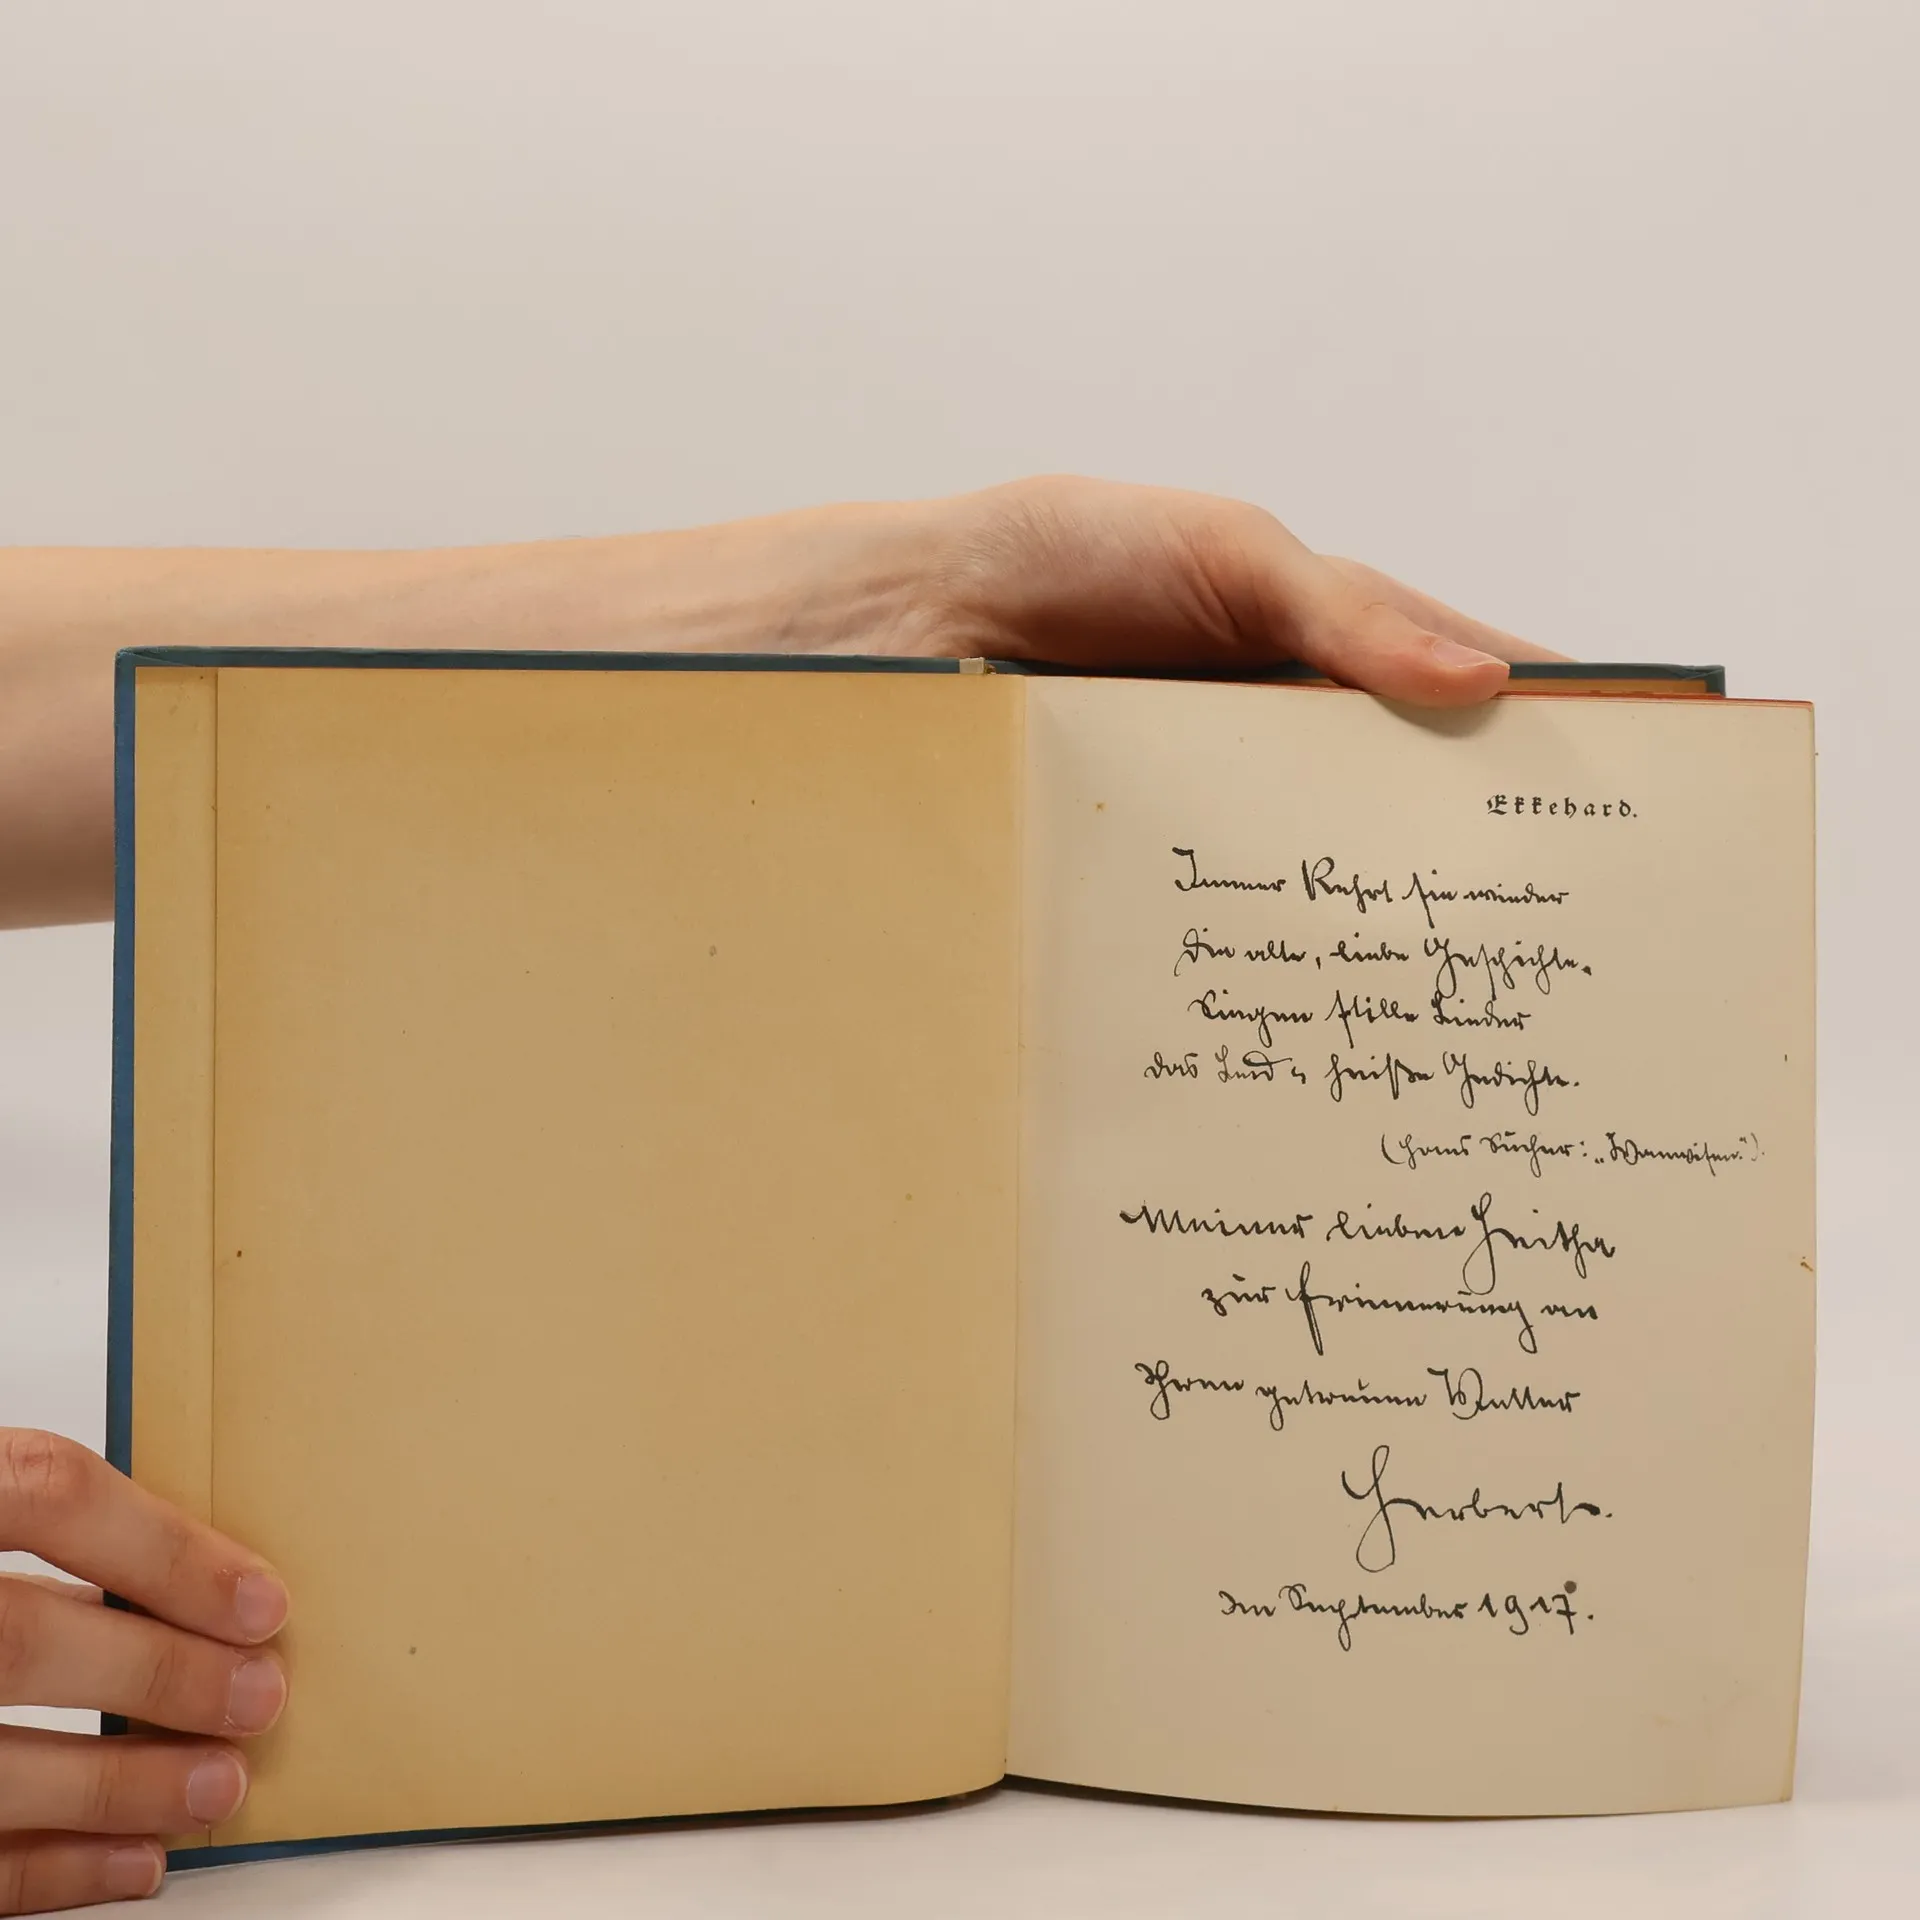 Ekkehard.
Immer kehrt sie wieder
die alte, liebe Geschichte.
Singen stille Lieder
das Leid u heiße Gedichte.
(Hans Bücher: „Wanwisen“).
Meiner lieben Freitha
zur Erinnerung an
Ihren getreuen Vetter
Herbert.
Im September 1917.